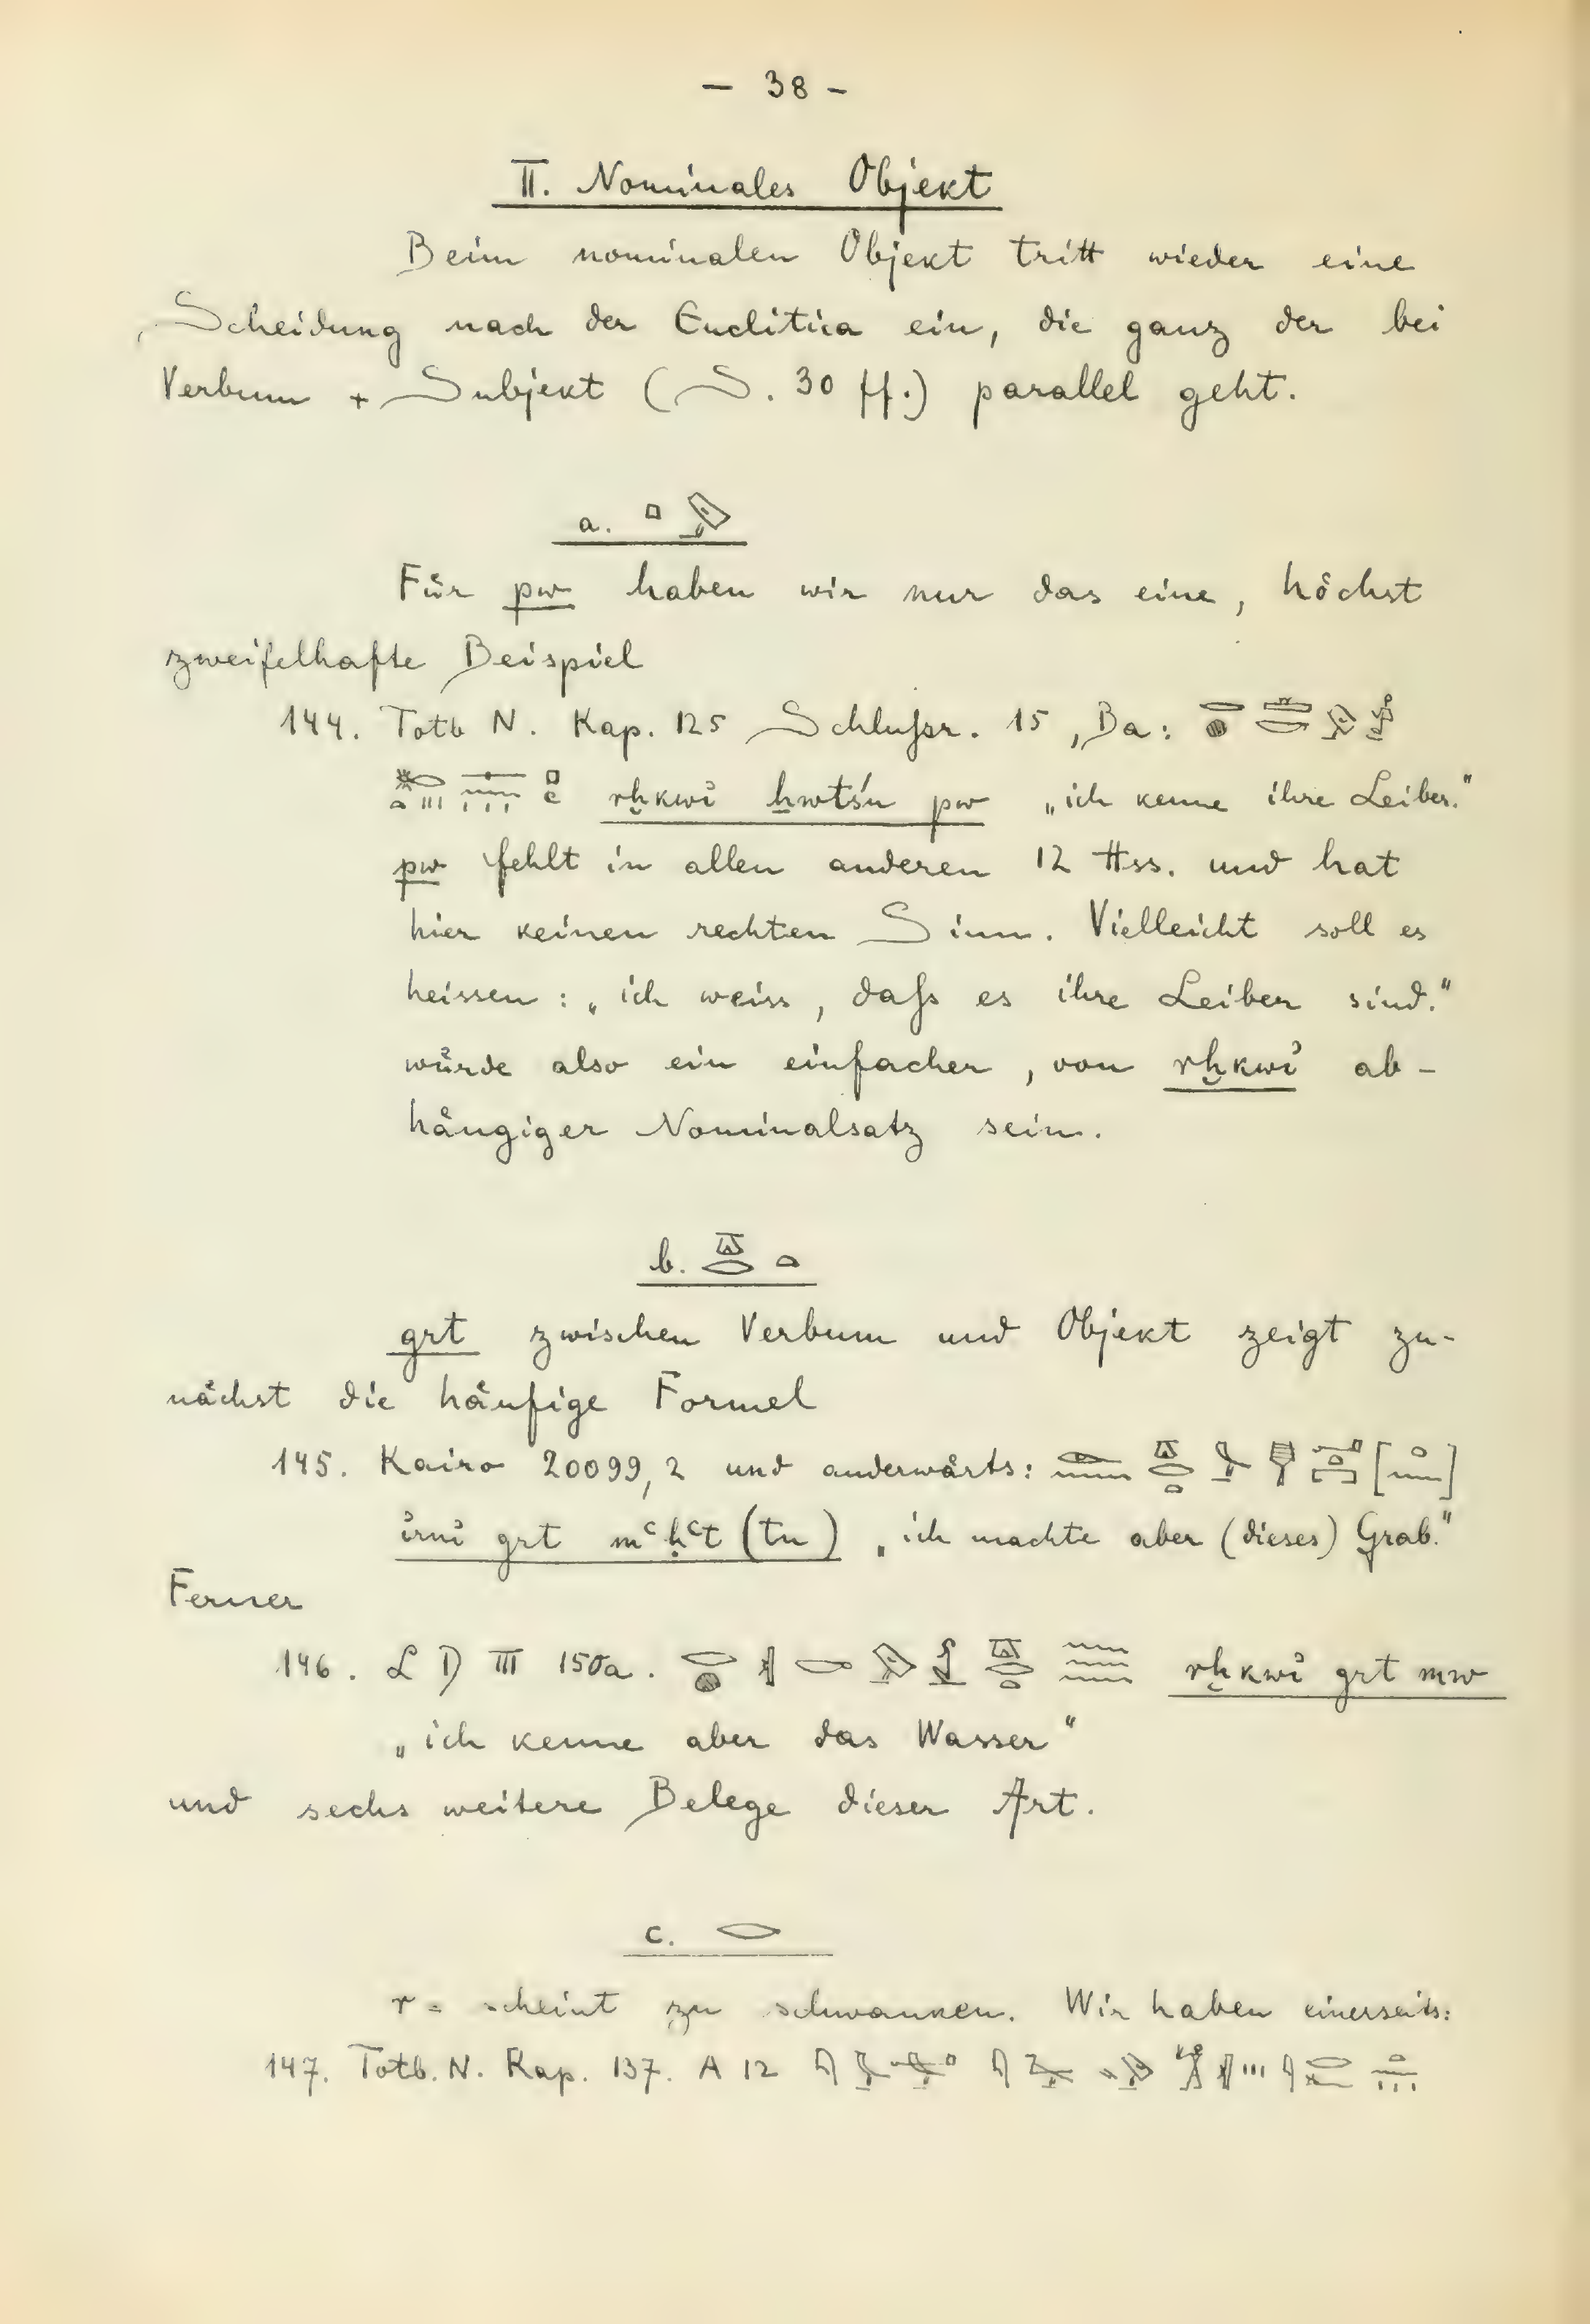 — 38 -
II. Nominales Objekt
Beim nominalen Objekt tritt wieder eine
Scheidung nach der Enclitica ein, die ganz der bei
Verbum + Subjekt (S. 30 ff.) parallel geht.
a.
Für pw haben wir nur das eine, höchst
zweifelhafte Beispiel
144. Totb N. Kap. 125 Schlußr. 15, Ba:
rḫkwỉ ẖwtśn pw „ich kenne ihre Leiber."
pw fehlt in allen anderen 12 Hss. und hat
hier keinen rechten Sinn. Vielleicht soll es
heissen: „ich weiss, daß es ihre Leiber sind."
würde also ein einfacher, von rḫkwỉ ab-
hängiger Nominalsatz sein.
b.
grt zwischen Verbum und Objekt zeigt zu-
nächst die häufige Formel
145. Kairo 20099,2 und anderwärts:
ỉrnỉ grt mꜥḥꜥt (tn) „ich machte aber (dieses) Grab."
Ferner
146. LD III 150a. rḫkwỉ grt mw
„ich kenne aber das Wasser"
und sechs weitere Belege dieser Art.
c.
r scheint zu schwanken. Wir haben einerseits:
147. Totb. N. Kap. 137. A 12